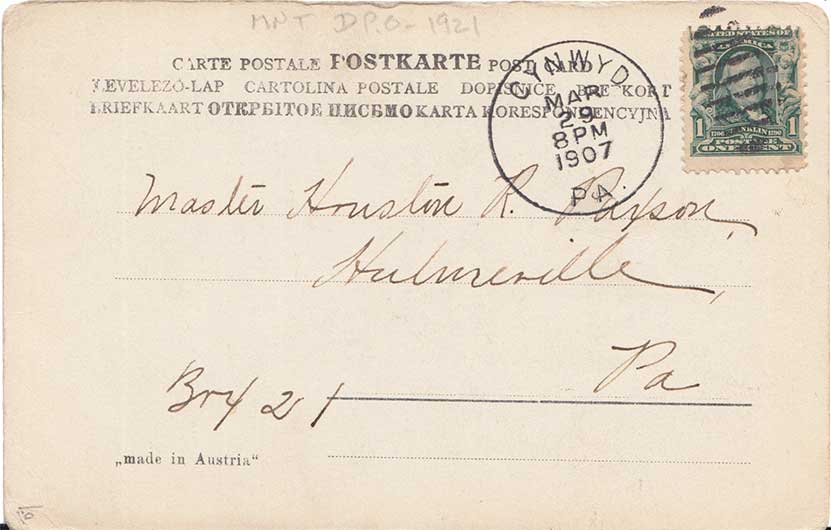 MNT D.P.O - 1921
CARTE POSTALE POSTKARTE POST CARD
LEVELEZŐ-LAP CARTOLINA POSTALE DOPISNICE BREFKORT
BRIEFKAART ОТКРЫТОЕ ПИСЬМО KARTA KORESPONDENCYJNA
CYNWYD
MAR
29
8PM
1907
PA
UNITED STATES OF
AMERICA
1 1706 FRANKLIN 1790 1
POSTAGE
ONE CENT
Master Houston R. Paxson,
Hulmeville,
Pa
Box 21
„made in Austria"